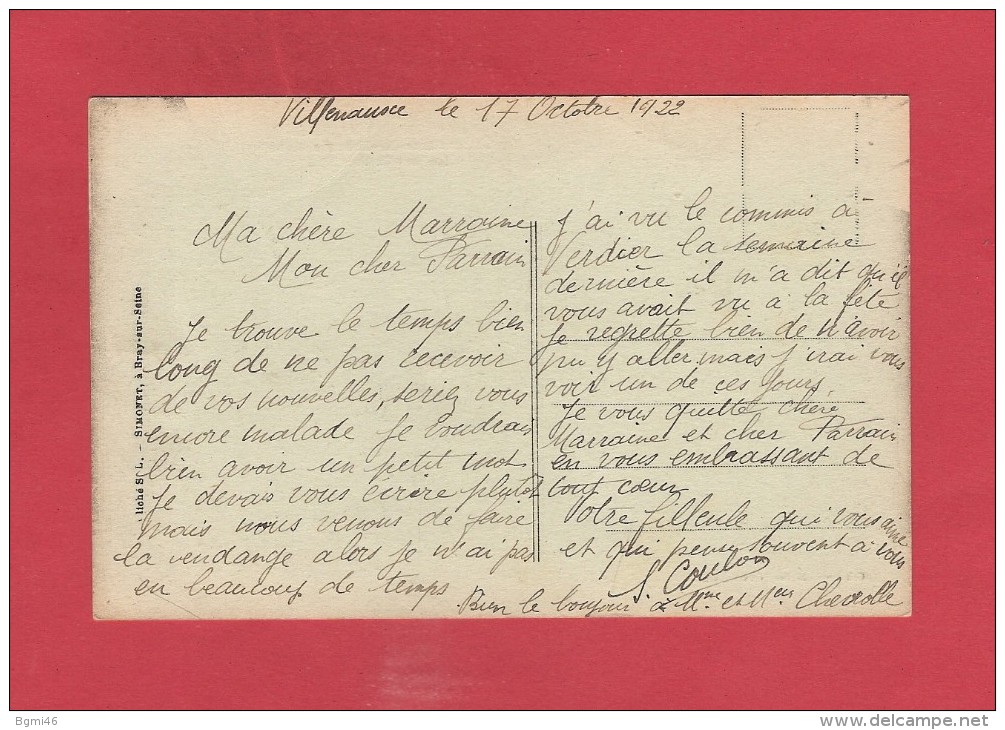 Villenauxe le 17 Octobre 1922
Ma chère Marraine
Mon cher Parrain
Je trouve le temps bien
long de ne pas recevoir
de vos nouvelles, seriez vous
encore malade Je voudrais
bien avoir un petit mot
Je devais vous écrire plutôt
mais nous venons de faire
la vendange alors je n'ai pas
eu beaucoup de temps
J'ai vu le commis à
Verdier la semaine
dernière il m'a dit qu'il
vous avait vu à la fête
Je regrette bien de n'avoir
pu y aller mais j'irai vous
voir un de ces jours
Je vous quitte chère
Marraine et cher Parrain
en vous embrassant de
tout cœur
Votre filleule qui vous aime
et qui pense souvent à vous
S. Coulon
Bien le bonjour à Mme et Mr
cliché St L. - SIMONET, à Bray-sur-Seine
Bgmi46
www.delcampe.net